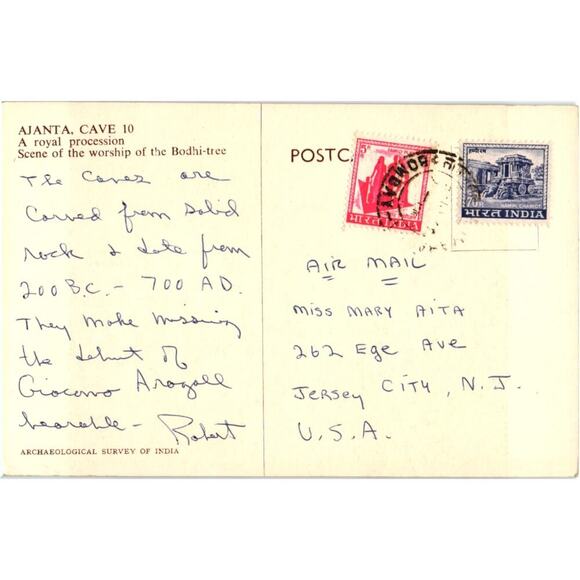 AJANTA, CAVE 10
A royal procession
Scene of the worship of the Bodhi-tree
The Caves are
Carved from solid
rock & date from
200 B.C. - 700 AD.
They make missing
the debut of
Giacomo Aragall
bearable -
Robert
ARCHAEOLOGICAL SURVEY OF INDIA
POSTCA
BOMBAY
भारत INDIA
HAMPI CHARIOT
भारत INDIA
AIR MAIL
MISS MARY AITA
262 Ege Ave
JERSEY CITY, N.J.
U.S.A.